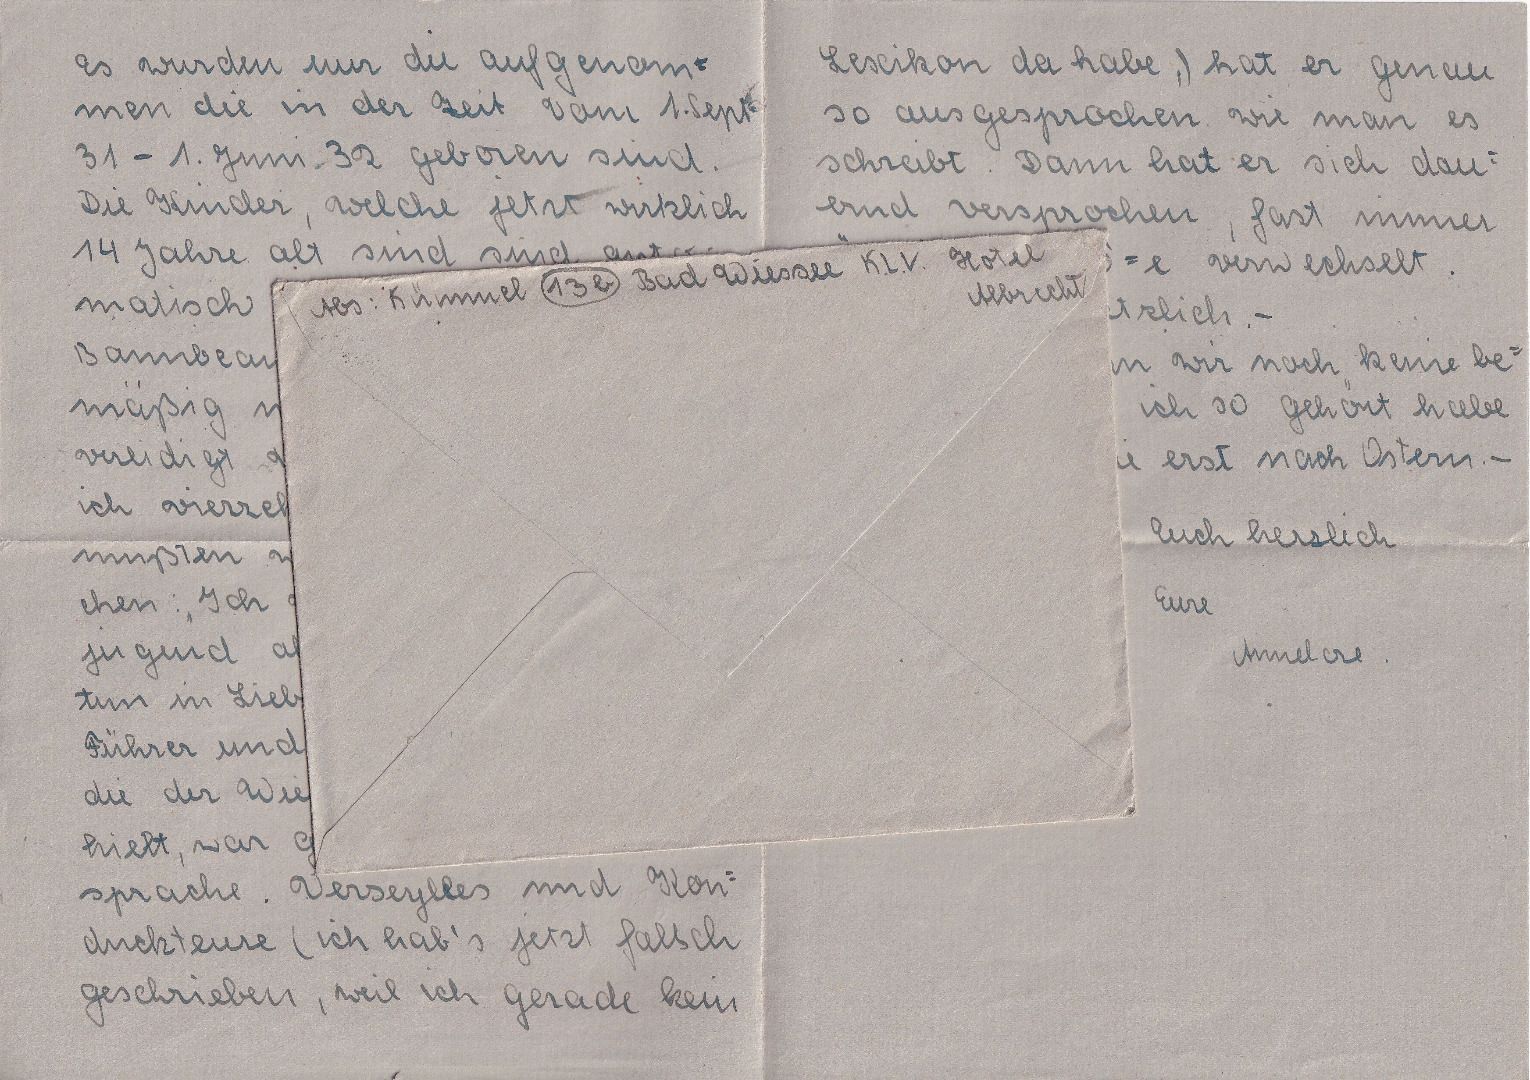 Es wurden nur die aufgenom=
men die in der Zeit vom 1. Sept.
31 - 1. Juni 32 geboren sind.
Die Kinder, welche jetzt wirklich
14 Jahre alt sind sind
matisch
Bannbeau
mäßig
vereidigt
ich vierzeh
mußten
chen: "Ich
jugend al
tun in Lieb
Führer und
die der Wie
hielt, war g
sprache. Verseylles und Kon=
duckteure (ich hab's jetzt falsch
geschrieben, weil ich gerade kein
Abs: Kümmel 13b Bad Wiessee KLV. Hotel
Albrecht
Lexikon da habe,) hat er genau
so ausgesprochen wie man es
schreibt. Dann hat er sich dau=
ernd versprochen, fast immer
ö=e verwechselt.
tzlich.-
wir noch keine be=
ich so gehört habe
ie erst nach Ostern.-
Euch herzlich
Eure
Annelore.